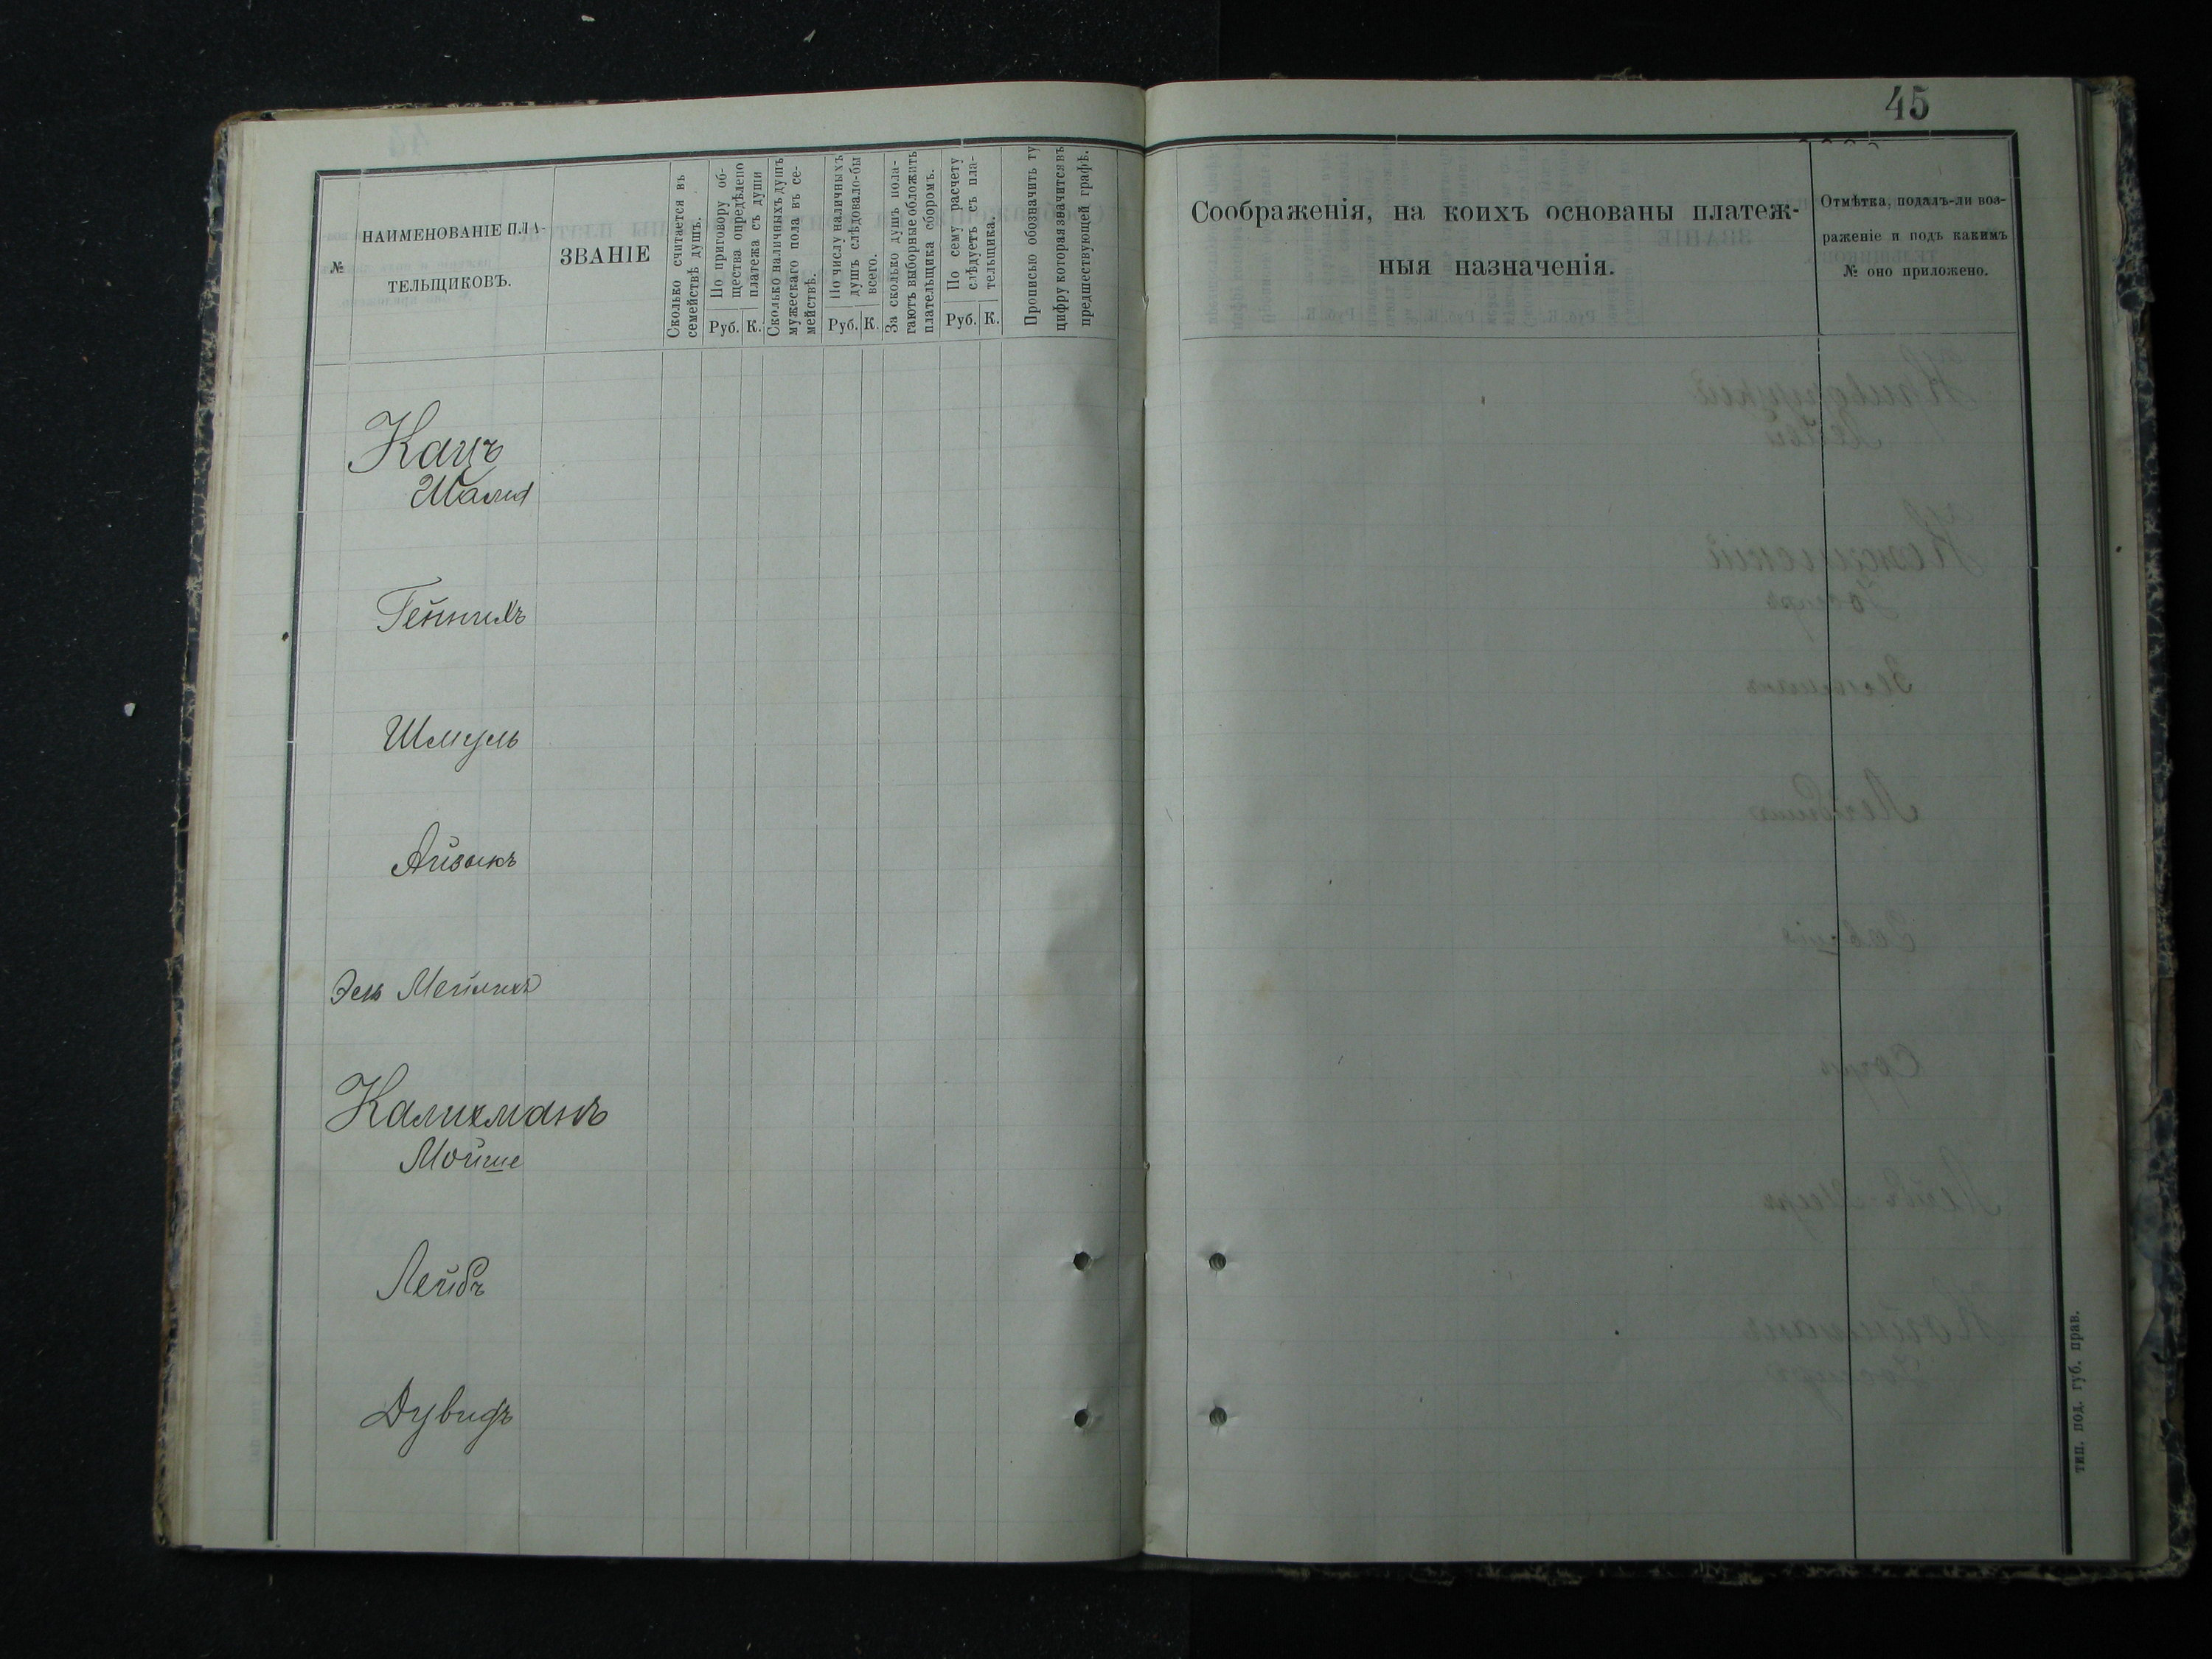 45
№
НАИМЕНОВАНІЕ ПЛА-
ТЕЛЬЩИКОВЪ.
ЗВАНІЕ
Сколько считается въ
семействѣ душъ.
По приговору об-
щества опредѣлено
платежа съ души
Руб. К.
Сколько наличныхъ душъ
мужескаго пола въ се-
мействѣ.
По числу наличныхъ
душъ слѣдовало-бы
всего.
Руб. К.
За сколько душъ пола-
гаютъ выборные обложить
плательщика сборомъ.
По сему расчету
слѣдуетъ съ пла-
тельщика.
Руб. К.
Прописью обозначить ту
цифру которая значится въ
предшествующей графѣ.
Соображенія, на коихъ основаны платеж-
ныя назначенія.
Отмѣтка, подалъ-ли воз-
раженіе и подъ какимъ
№ оно приложено.
Кацъ
Гейнихъ
Шмуль
Айзыкъ
Мейлихъ
Калихманъ
Мойше
Лейбъ
Дувидъ
тип. под. губ. прав.